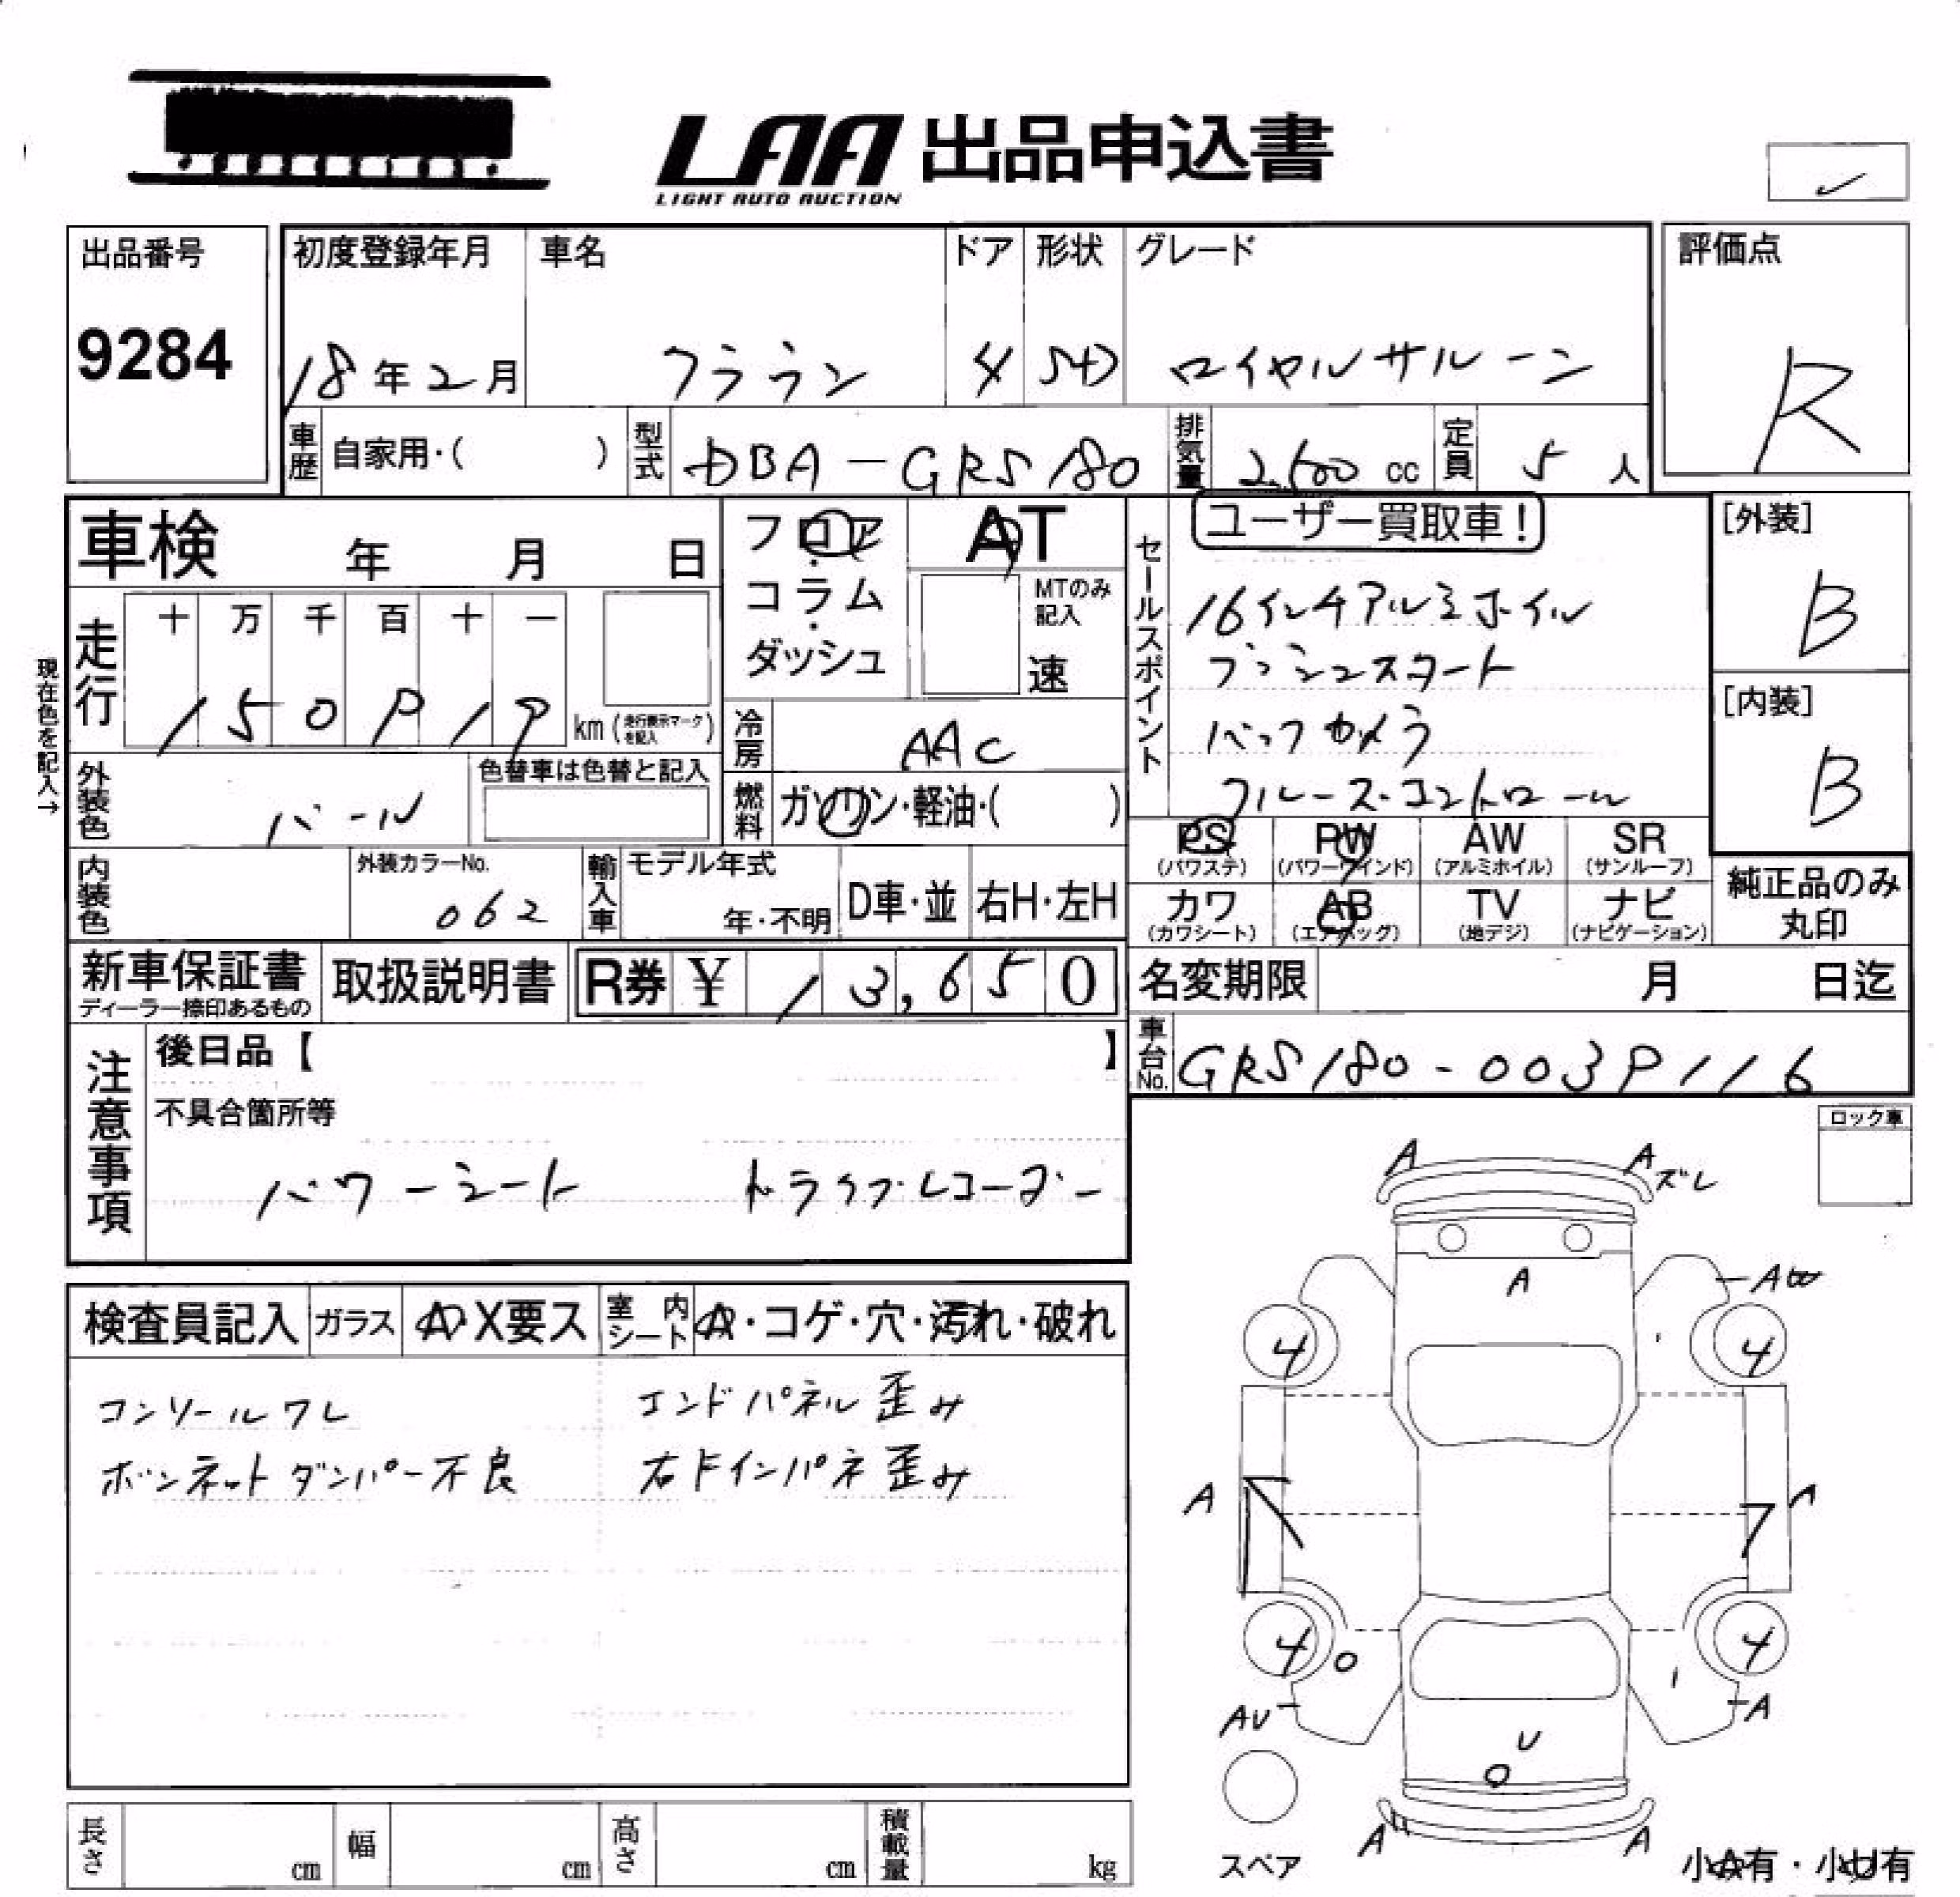 LAA 出品申込書
LIGHT AUTO AUCTION
出品番号
9284
初度登録年月
18年2月
車名
クラウン
ドア
4
形状
SD
グレード
ロイヤルサルーン
評価点
R
車歴
自家用・( )
型式
DBA-GRS180
排気量
2,500 cc
定員
5 人
車検 年 月 日
フロア
・
コラム
・
ダッシュ
AT
MTのみ
記入
速
セールスポイント
ユーザー買取車!
16インチアルミホイル
プッシュスタート
バックカメラ
クルーズ・コントロール
[外装]
B
[内装]
B
現在色を記入→
走行
十 万 千 百 十 一
150919
km (走行表示マークを記入)
冷房
AAC
外装色
パール
色替車は色替と記入
燃料
ガソリン・軽油・( )
PS
(パワステ)
PW
(パワーウインド)
AW
(アルミホイル)
SR
(サンルーフ)
カワ
(カワシート)
AB
(エアバッグ)
TV
(地デジ)
ナビ
(ナビゲーション)
純正品のみ
丸印
内装色
外装カラーNo.
062
輸入車
モデル年式
年・不明
D車・並
右H・左H
新車保証書
ディーラー捺印あるもの
取扱説明書
R券 ¥ 13,650
名変期限 月 日迄
車台No.
GRS180-0039116
注意事項
後日品【 】
不具合箇所等
パワーシート ドライブレコーダー
ロック車
検査員記入
ガラス
A・X要ス
室内シート
A・コゲ・穴・汚れ・破れ
コンソールワレ エンドパネル歪み
ボンネットダンパー不良 右Fインパネ歪み
A
A
ズレ
A
AW
4
4
A
4
4
AU
A
U
A
A
スペア
小A有・小U有
長さ cm
幅 cm
高さ cm
積載量 kg